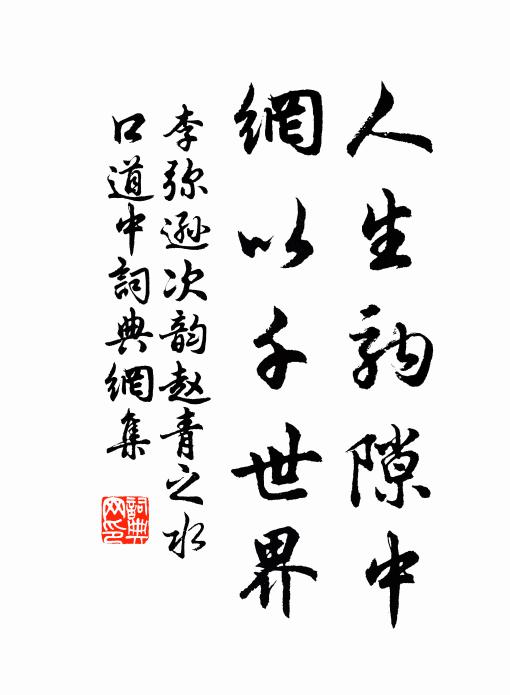 人生駒隙中
網以千世界
李弥遜次韵趙青之水
口道中詞典網集
詞典网印